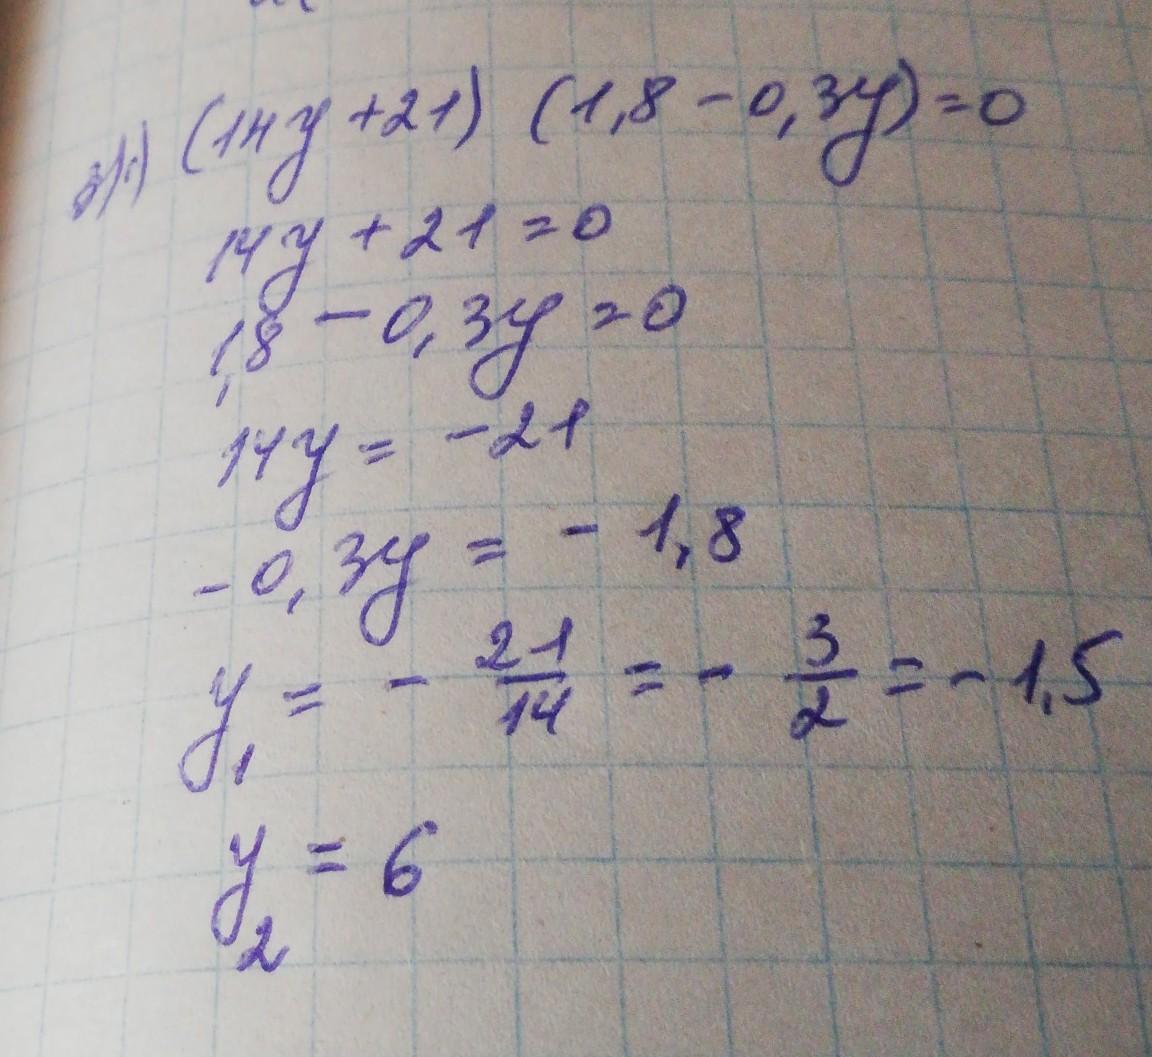 (14y+21) (1,8-0,3y)=0
14y+21=0
1,8-0,3y=0
14y=-21
-0,3y=-1,8
y₁=-21/14=-3/2=-1,5
y₂=6